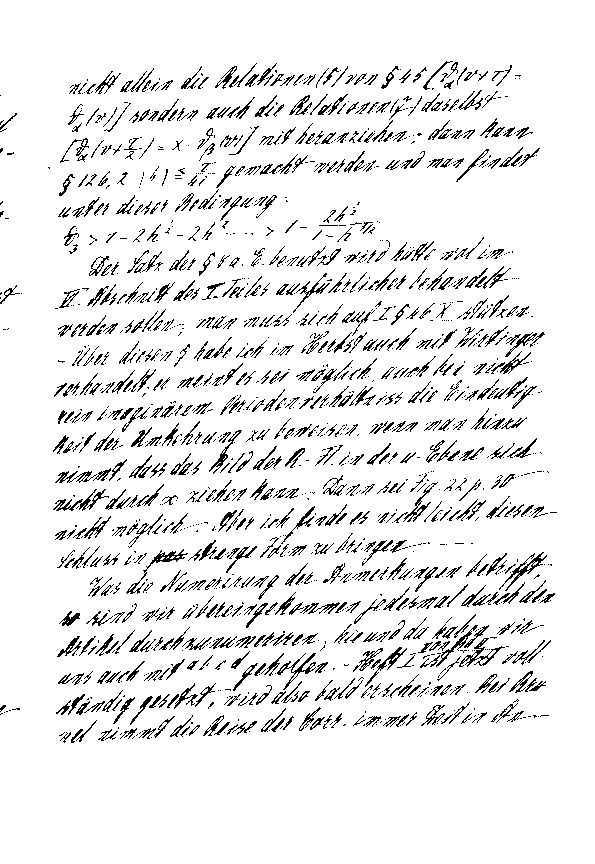 nicht allein die Relationen (5) von § 45 [ϑ₂(v+τ) =
ϑ₂(v)] sondern auch die Relationen (7) daselbst
[ϑ₂(v+τ/2) = x · ϑ₃(v)] mit heranziehen; dann kann
§ 126, 2 gemacht werden und man findet
unter dieser Bedingung:
ϑ₃ > 1 − 2h − 2h² .... > 1 − 2h/1−h
Der Satz der § 8 a. E. benutzt wird hätte wol im
VI Abschnitt des I. Teiles ausführlicher behandelt
werden sollen; man muss sich auf I § 46 X stützen.
– Über diesen § habe ich im Herbst auch mit Wirtinger
verhandelt, er meint es sei möglich auch bei nicht
rein imaginärem Periodenverhältniss die Eindeutig-
keit der Umkehrung zu beweisen, wenn man hinzu
nimmt, dass das Bild der R. Fl. in der u-Ebene sich
nicht durch ∞ ziehen kann. Dann sei Fig. 22 p. 30
nicht möglich. Aber ich finde es nicht leicht, diesen
Schluss in strenge Form zu bringen
Was die Numerirung der Anmerkungen betrifft,
so sind wir übereingekommen jedesmal durch den
Artikel durchzunumeriren; hie und da haben wir
uns auch mit a b c d geholfen. – Heft I ist jetzt voll
ständig gesetzt, wird also bald erscheinen. Bei
nimmt die Reise der Corr. immer Zeit in An-